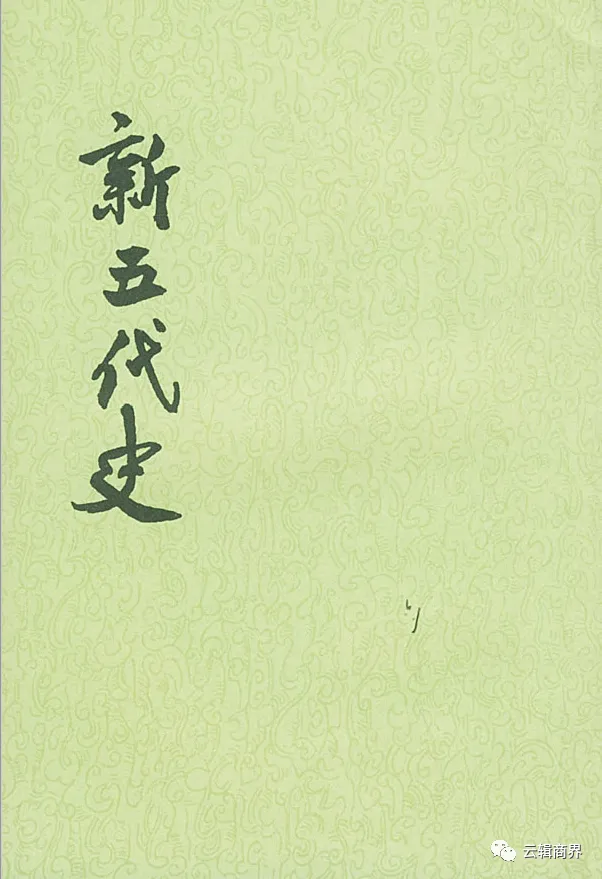 新五代史
云辑商界